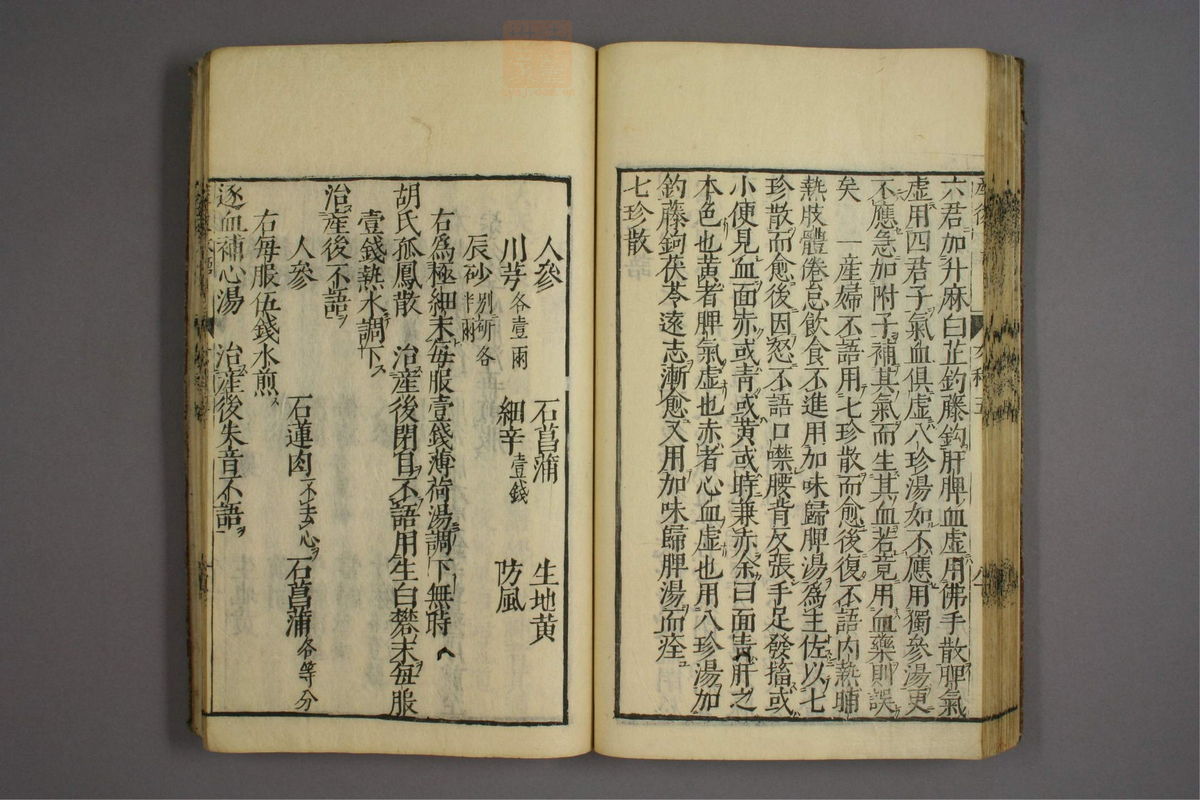 六君加升麻白芷釣藤鈎肝脾血虛用佛手散脾氣
虛用四君子氣血俱虛八珍湯如不應用獨參湯更
不應急加附子補其氣而生其血若竟用血藥則誤
矣　一產婦不語用七珍散而愈後復不語内熱晡
熱肢體倦怠飲食不進用加味歸脾湯為主佐以七
珍散而愈後因怒不語口噤腰背反張手足發搐或
小便見血面赤或青或黃或時兼赤余曰面青肝之
本色也黃者脾氣虛也赤者心血虛也用八珍湯加
釣藤鉤茯苓遠志漸愈又用加味歸脾湯而痊
七珍散
人參　石菖蒲　生地黄
川芎各壹兩　細辛壹錢　防風
辰砂别研各半兩
右為極細末每服壹錢薄荷湯調下無時
胡氏孤鳳散　治產後閉目不語用生白礬末每服
壹錢熱水調下
治產後不語
人參　石蓮肉不去心　石菖蒲各等分
右每服伍錢水煎
逐血補心湯　治產後失音不語